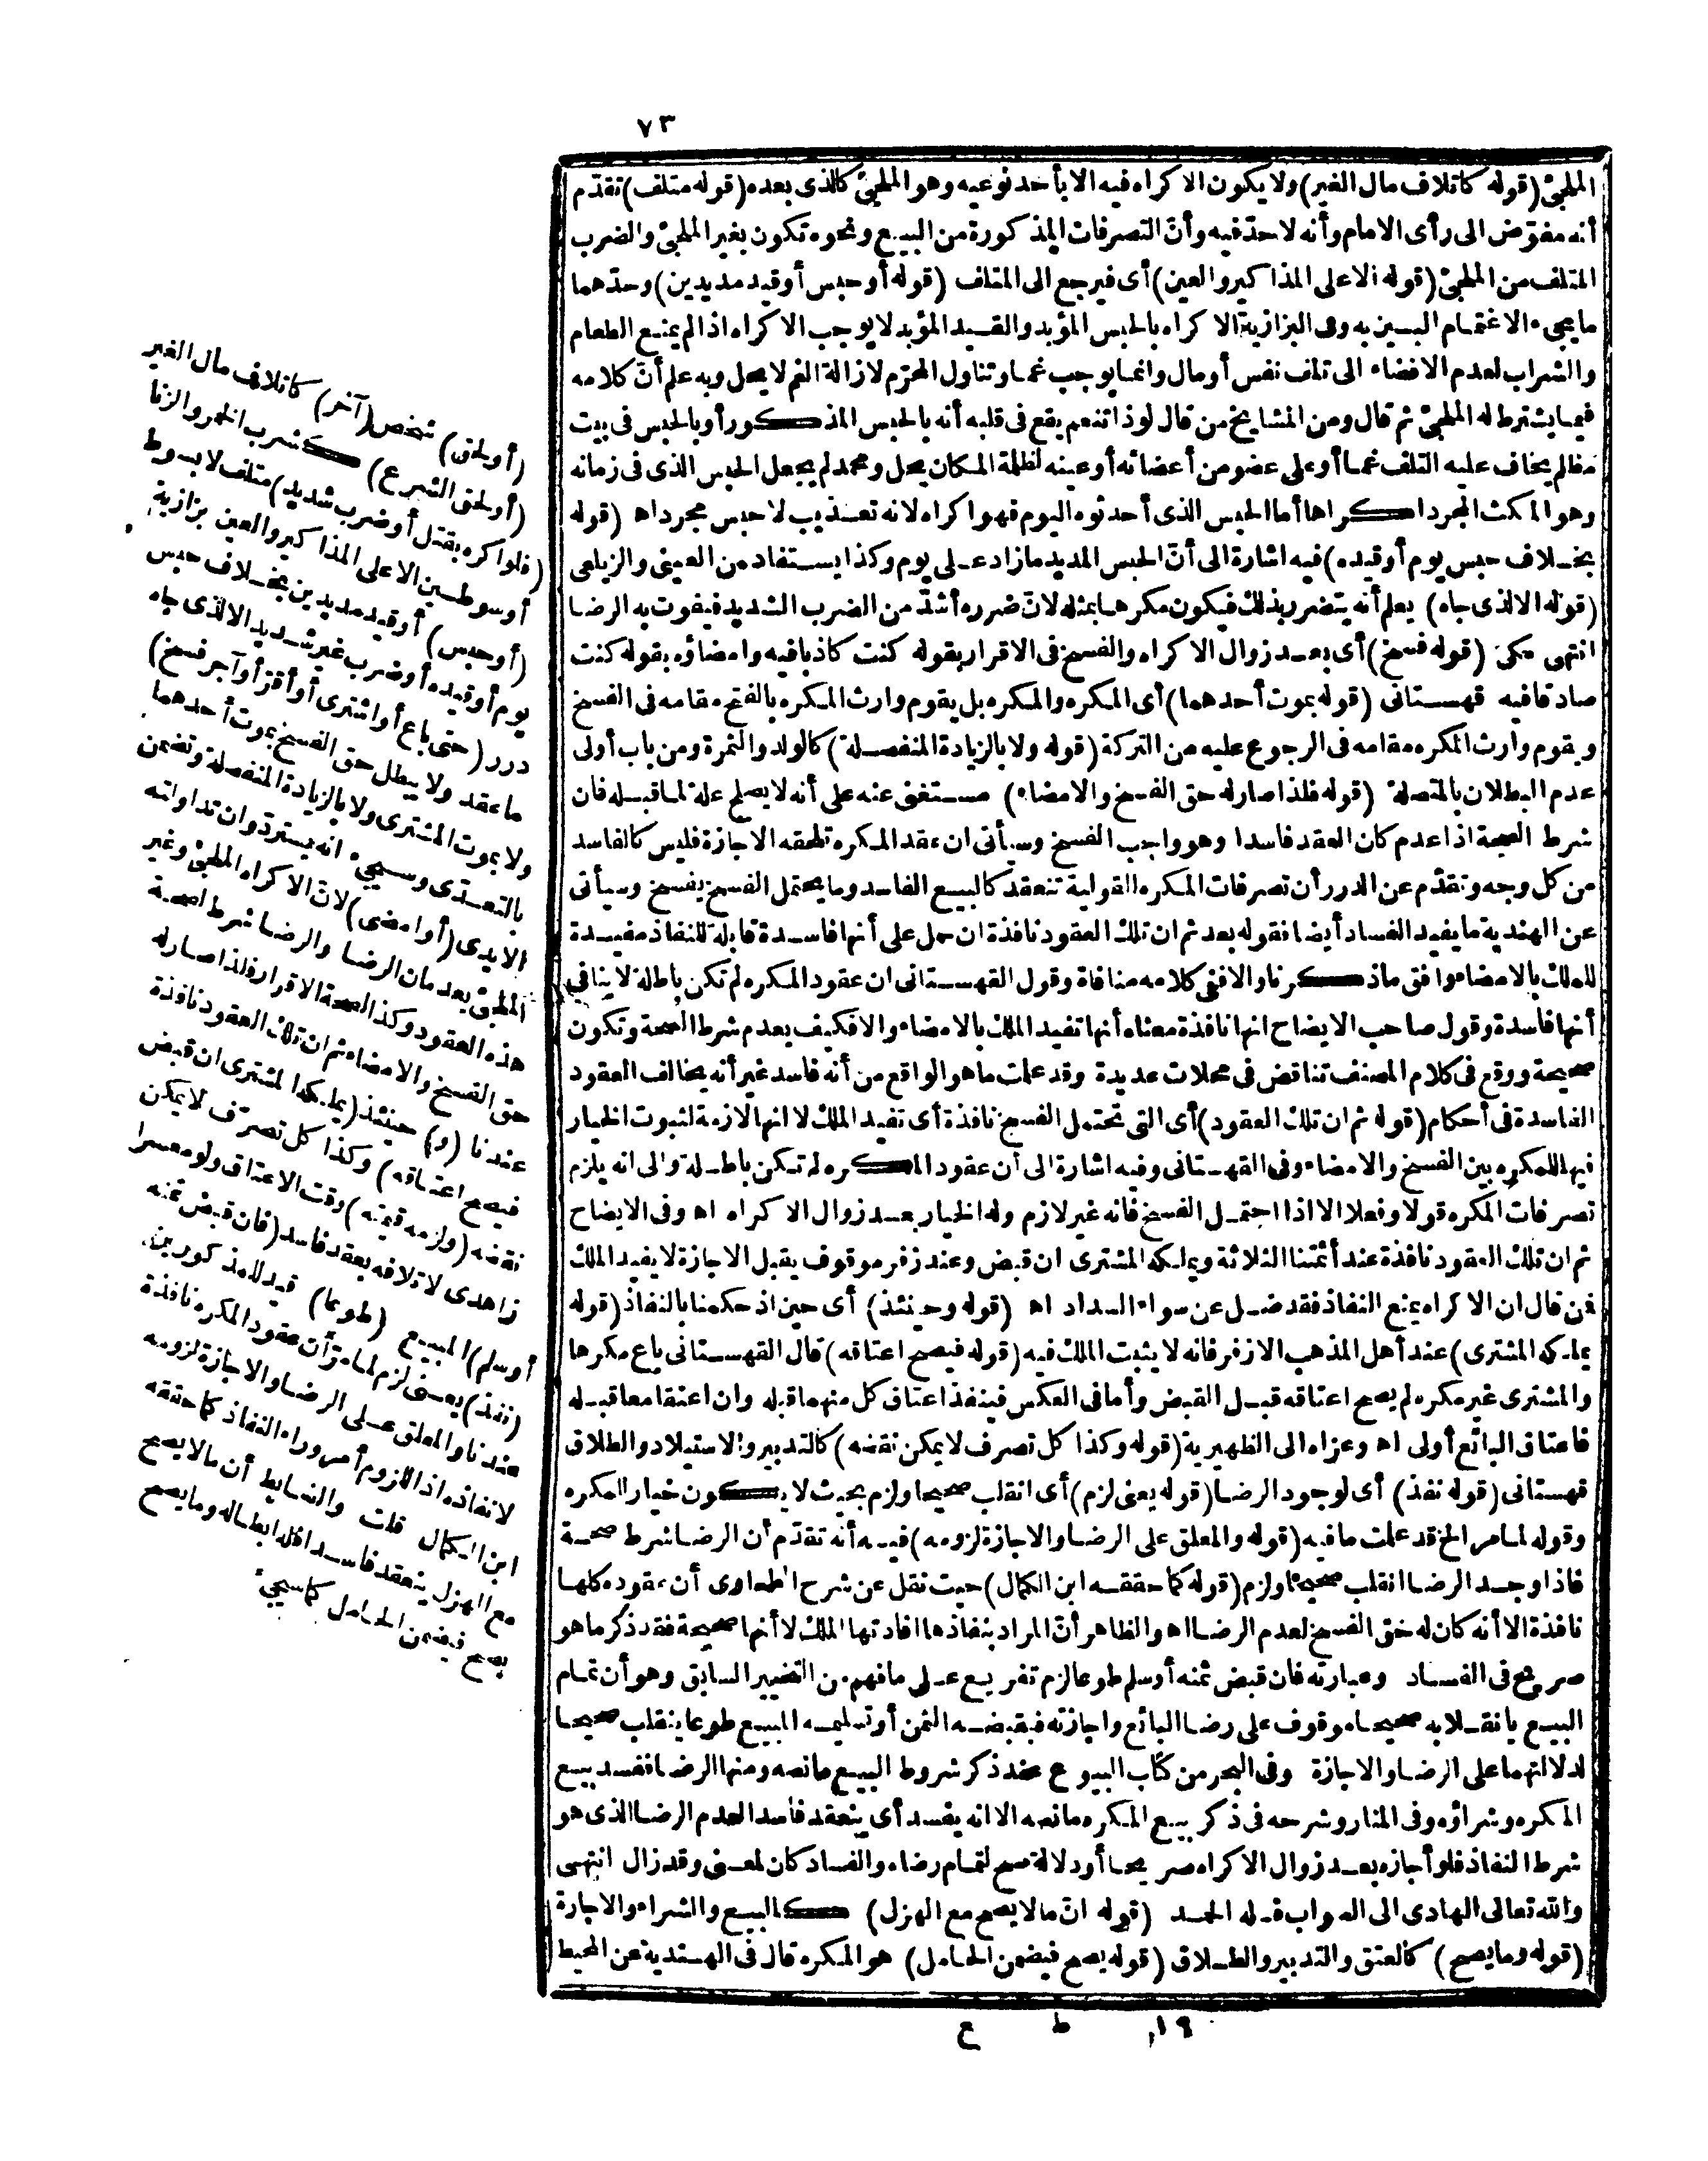 ٧٣
الملجئ (قوله كاتلاف مال الغير) ولا يكون الاكراه فيه الا بأحد نوعيه وهو الملجئ كالذى بعده (قوله متلف) تقدّم
أنه مفوّض الى رأى الامام وأنه لا حدّ فيه وأنّ التصرفات المذكورة من البيع ونحوه تكون بغير الملجئ والضرب
المتلف من الملجئ (قوله الا على المذاكير والعين) أى فيرجع الى المتلف (قوله أو حبس أو قيد مديدين) وحدّهما
ما يجىء الاغتمام البين به وفى البزازية الاكراه بالحبس المؤبد والقيد المؤبد لا يوجب الاكراه اذا لم يمنع الطعام
والشراب لعدم الافضاء الى تلف نفس أو مال وانما يوجب غما وتناول المحرّم لازالة الغم لا يحل وبه علم أنّ كلامه
فيما يشترط له الملجئ ثم قال ومن المشايخ من قال لو ذا تنعم يقع فى قلبه أنه بالحبس المذكور أو بالحبس فى بيت
مظلم يخاف عليه التلف غما أو على عضو من أعضائه أو عينه لظلمة المكان يحل ومحمد لم يجعل الحبس الذى فى زمانه
وهو المكث المجرد اكراها أما الحبس الذى أحدثوه اليوم فهو اكراه لانه تعذيب لا حبس مجرد اه (قوله
بخلاف حبس يوم أو قيده) فيه اشارة الى أنّ الحبس المديد ما زاد على يوم وكذا يستفاد من العينى والزيلعى
(قوله الا لذى جاه) يعلم أنه يتضرر بذلك فيكون مكرها بمثله لانّ ضرره أشدّ من الضرب الشديد فيفوت به الرضا
انتهى مكى (قوله فسخ) أى بعد زوال الاكراه والفسخ فى الاقرار بقوله كنت كاذبا فيه وامضاؤه بقوله كنت
صادقا فيه قهستانى (قوله بموت أحدهما) أى المكره والمكره بل يقوم وارث المكره بالفتح مقامه فى الفسخ
ويقوم وارث المكره مقامه فى الرجوع عليه من التركة (قوله ولا بالزيادة المنفصلة) كالولد والثمرة ومن باب أولى
عدم البطلان بالمتصلة (قوله فلذا صار له حق الفسخ والامضاء) مستغنى عنه على أنه لا يصلح علة لما قبله فان
شرط الصحة اذا عدم كان العقد فاسدا وهو واجب الفسخ وسيأتى ان عقد المكره تلحقه الاجازة فليس كالفاسد
من كل وجه وتقدّم عن الدرر أن تصرفات المكره القولية تنعقد كالبيع الفاسد وما يحتمل الفسخ يفسخ وسيأتى
عن الهندية ما يفيد الفساد أيضا فقوله بعد ثم ان تلك العقود نافذة ان حمل على أنها فاسدة قابلة للنفاذ مفيدة
للملك بالامضاء وافق ما ذكرنا والا ففى كلامه منافاة وقول القهستانى ان عقود المكره لم تكن باطلة لا ينافى
أنها فاسدة وقول صاحب الايضاح انها نافذة معناه أنها تفيد الملك بالامضاء والا فكيف بعدم شرط الصحة وتكون
صحيحة ووقع فى كلام المصنف تناقض فى محلات عديدة وقد علمت ما هو الواقع من أنه فاسد غير أنه يخالف العقود
الفاسدة فى أحكام (قوله ثم ان تلك العقود) أى التى تحتمل الفسخ نافذة أى تفيد الملك لا انها لازمة لثبوت الخيار
فيها للمكره بين الفسخ والامضاء وفى القهستانى وفيه اشارة الى أن عقود المكره لم تكن باطلة والى انه يلزم
تصرفات المكره قولا وفعلا الا اذا احتمل الفسخ فانه غير لازم وله الخيار بعد زوال الاكراه اه وفى الايضاح
ثم ان تلك العقود نافذة عند أئمتنا الثلاثة ويملكه المشترى ان قبض وعند زفر موقوف يقبل الاجازة لا يفيد الملك
فمن قال ان الاكراه يمنع النفاذ فقد ضل عن سواء السداد اه (قوله وحينئذ) أى حين اذ حكمنا بالنفاذ (قوله
يملكه المشترى) عند أهل المذهب الا زفر فانه لا يثبت الملك فيه (قوله فيصح اعتاقه) قال القهستانى باع مكرها
والمشترى غير مكره لم يصح اعتاقه قبل القبض وأما فى العكس فينفذ اعتاق كل منهما قبله وان اعتقا معا قبله
فاعتاق البائع أولى اه وعزاه الى الظهيرية (قوله وكذا كل تصرف لا يمكن نقضه) كالتدبير والاستيلاد والطلاق
قهستانى (قوله نفذ) أى لوجود الرضا (قوله يعنى لزم) أى انقلب صحيحا ولزم بحيث لا يكون خيار المكره
وقوله لما مر الخ قد علمت ما فيه (قوله والمعلق على الرضا والاجازة لزومه) فيه أنه تقدّم أن الرضا شرط صحة
فاذا وجد الرضا انقلب صحيحا ولزم (قوله كما حققه ابن الكمال) حيث نقل عن شرح الطحاوى أن عقوده كلها
نافذة الا أنه كان له حق الفسخ لعدم الرضا اه والظاهر أنّ المراد بنفاذها افادتها الملك لا أنها صحيحة فقد ذكر ما هو
صريح فى الفساد وعبارته فان قبض ثمنه أو سلم طوعا لزم تفريع على ما فهم من التخيير السابق وهو أن تمام
البيع بانقلابه صحيحا موقوف على رضا البائع واجازته فبقبضه الثمن أو تسليمه المبيع طوعا ينقلب صحيحا
لدلالتهما على الرضا والاجازة وفى البحر من كتاب البيوع عند ذكر شروط البيع ما نصه ومنها الرضا ففسد بيع
المكره وشراؤه وفى المنار وشرحه فى ذكر بيع المكره ما نصه الا انه يفسد أى ينعقد فاسدا لعدم الرضا الذى هو
شرط النفاذ فلو أجازه بعد زوال الاكراه صريحا أو دلالة صح لتمام رضاه والفساد كان لمعنى وقد زال انتهى
والله تعالى الهادى الى الصواب فله الحمد (قوله انّ ما لا يصح مع الهزل) كالبيع والشراء والاجارة
(قوله وما يصح) كالعتق والتدبير والطلاق (قوله يصح فيضمن الحامل) هو المكره قال فى الهندية عن المحيط
(أو لحق) شخص (آخر) كاتلاف مال الغير
(أو لحق الشرع) كشرب الخمر والزنا
(فلو اكره بقتل أو ضرب شديد) متلف لا بسوط
أو سوطين الا على المذاكير والعين بزازية
(أو حبس) أو قيد مديدين بخلاف حبس
يوم أو قيده أو ضرب غير شديد الا لذى جاه
درر (حتى باع أو اشترى أو أقرّ أو آجر فسخ)
ما عقد ولا يبطل حق الفسخ بموت أحدهما
ولا بموت المشترى ولا بالزيادة المنفصلة وتضمن
بالتعدّى وسيجىء انه يستردّ وان تداولته
الايدى (أو امضى) لانّ الاكراه الملجئ وغير
الملجئ يعدمان الرضا والرضا شرط لصحة
هذه العقود وكذا لصحة الاقرار فلذا صار له
حق الفسخ والامضاء ثم ان تلك العقود نافذة
عندنا (و) حينئذ (يملكه المشترى ان قبض
فيصح اعتاقه) وكذا كل تصرّف لا يمكن
نقضه (ولزمه قيمته) وقت الاعتاق ولو معسرا
زاهدى لاتلافه بعقد فاسد (فان قبض ثمنه
أو سلم) المبيع (طوعا) قيد للمذكورين
(نفذ) يعنى لزم لما مرّ أن عقود المكره نافذة
عندنا والمعلق على الرضا والاجازة لزومه
لا نفاذه اذ اللزوم أمر وراء النفاذ كما حققه
ابن الكمال قلت والضابط أن ما لا يصح
مع الهزل ينعقد فاسدا فله ابطاله وما يصح
يصح فيضمن الحامل كما سيجىء
١٩ ط ع